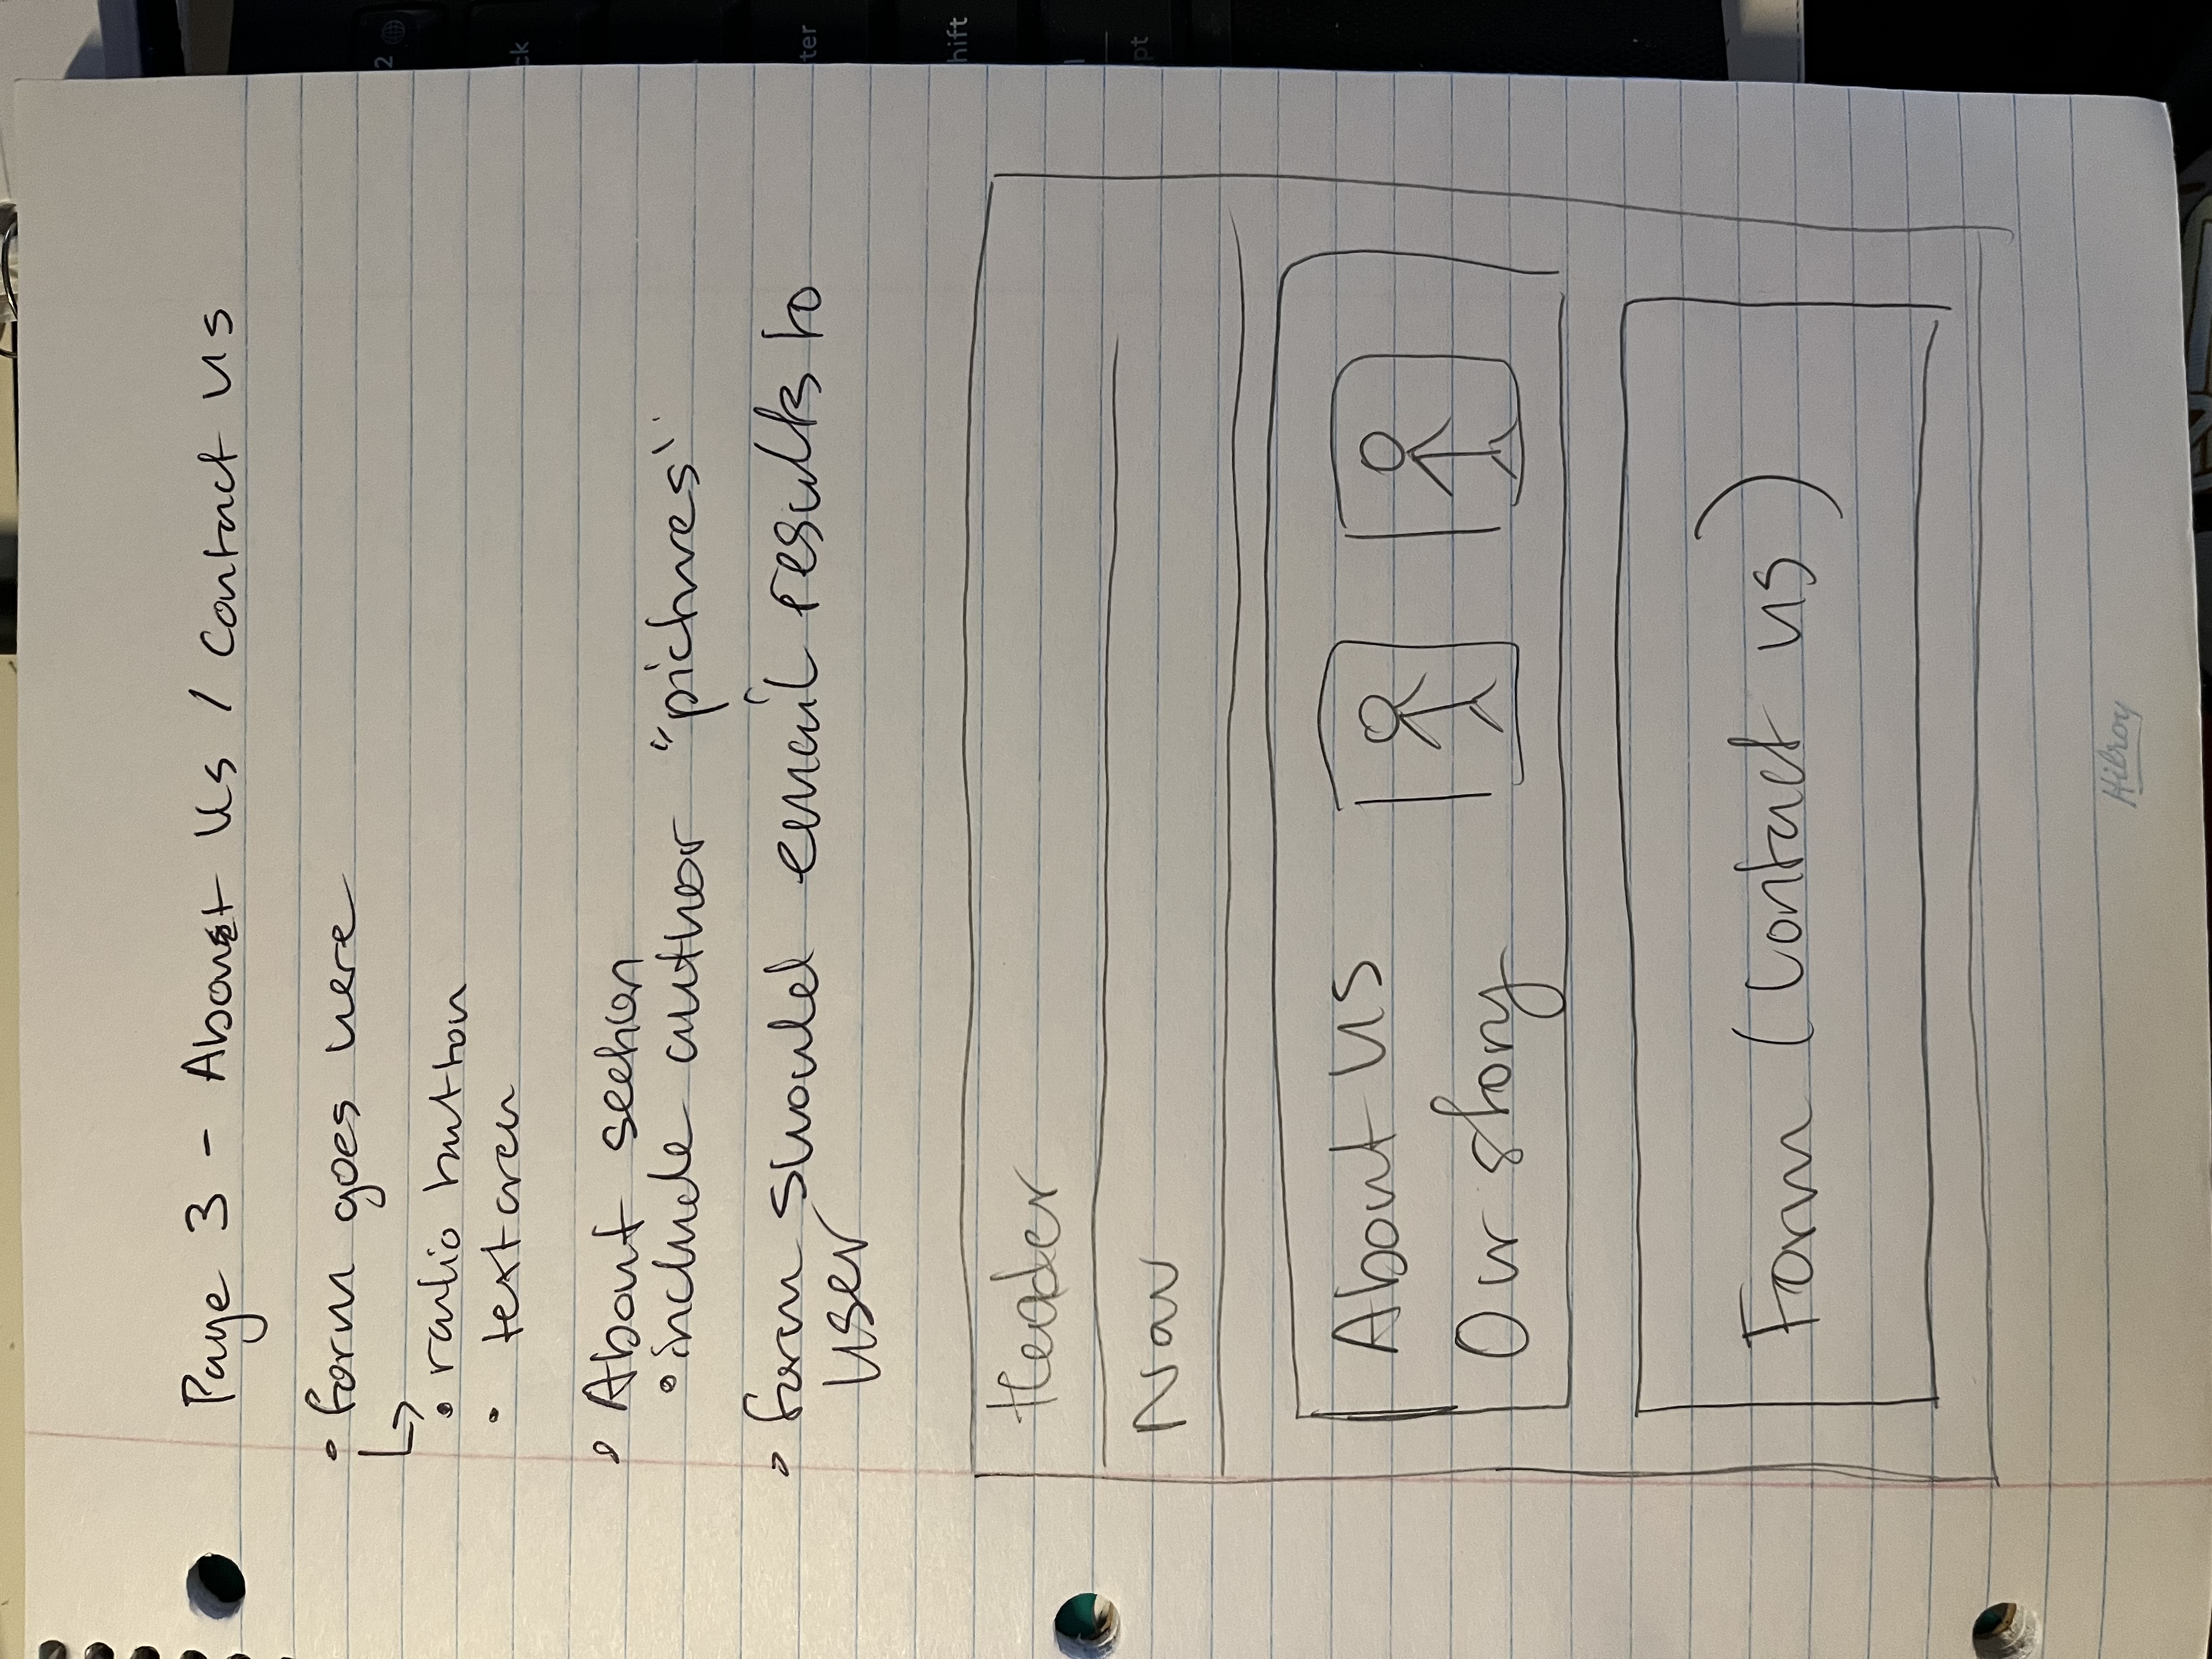 Page 3 - About Us / Contact Us
• form goes here
• radio button
• textarea
• About section
• include author "pictures"
• form should email results to
user
Header
Nav
About Us
Our story
Form (Contact us)
Hilroy
2
ck
ter
hift
pt